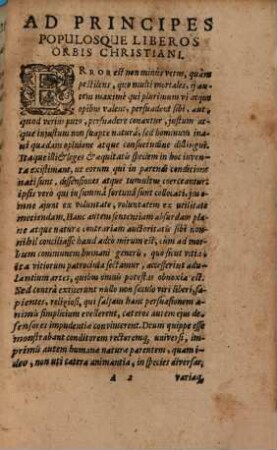 AD PRINCIPES
POPULOSQUE LIBEROS
ORBIS CHRISTIANI.
ERROR est non minus vetus, quàm
pestilens, quo multi mortales, ij au-
tem maximè qui plurimum vi atque
opibus valent, persuadent sibi, aut,
quod verius puto, persuadere conantur, justum at-
que injustum non suapte natura, sed hominum ina-
ni quadam opinione atque consuetudine distingui.
Itaque illi & leges & æquitatis speciem in hoc inventa
existimant, ut eorum qui in parendi conditione
nati sunt, dissensiones atque tumultus coërceantur:
ipsis verò qui in summa fortuna sunt collocati, jus o-
mne ajunt ex voluntate, voluntatem ex utilitate
metiendam. Hanc autem sententiam absurdam pla-
ne atque naturæ contrariam auctoritatis sibi non
nihil conciliasse haud adeò mirum est, cum ad mor-
bum communem humani generis, quo sicut vitia,
ita vitiorum patrocinia sectamur, accesserint adu-
lantium artes, quibus omnis potestas obnoxia est.
Sed contrà extiterunt nullo non sæculo viri liberi, sa-
pientes, religiosi, qui falsam hanc persuasionem a-
nimis simplicium evellerent, cæteros autem ejus de-
fensores impudentiæ convincerent. Deum quippe esse
monstrabant conditorem rectoremq; universi, im-
primis autem humanæ naturæ parentem, quam i-
deo, non uti cætera animantia, in species diversas,
A 2 variaq,